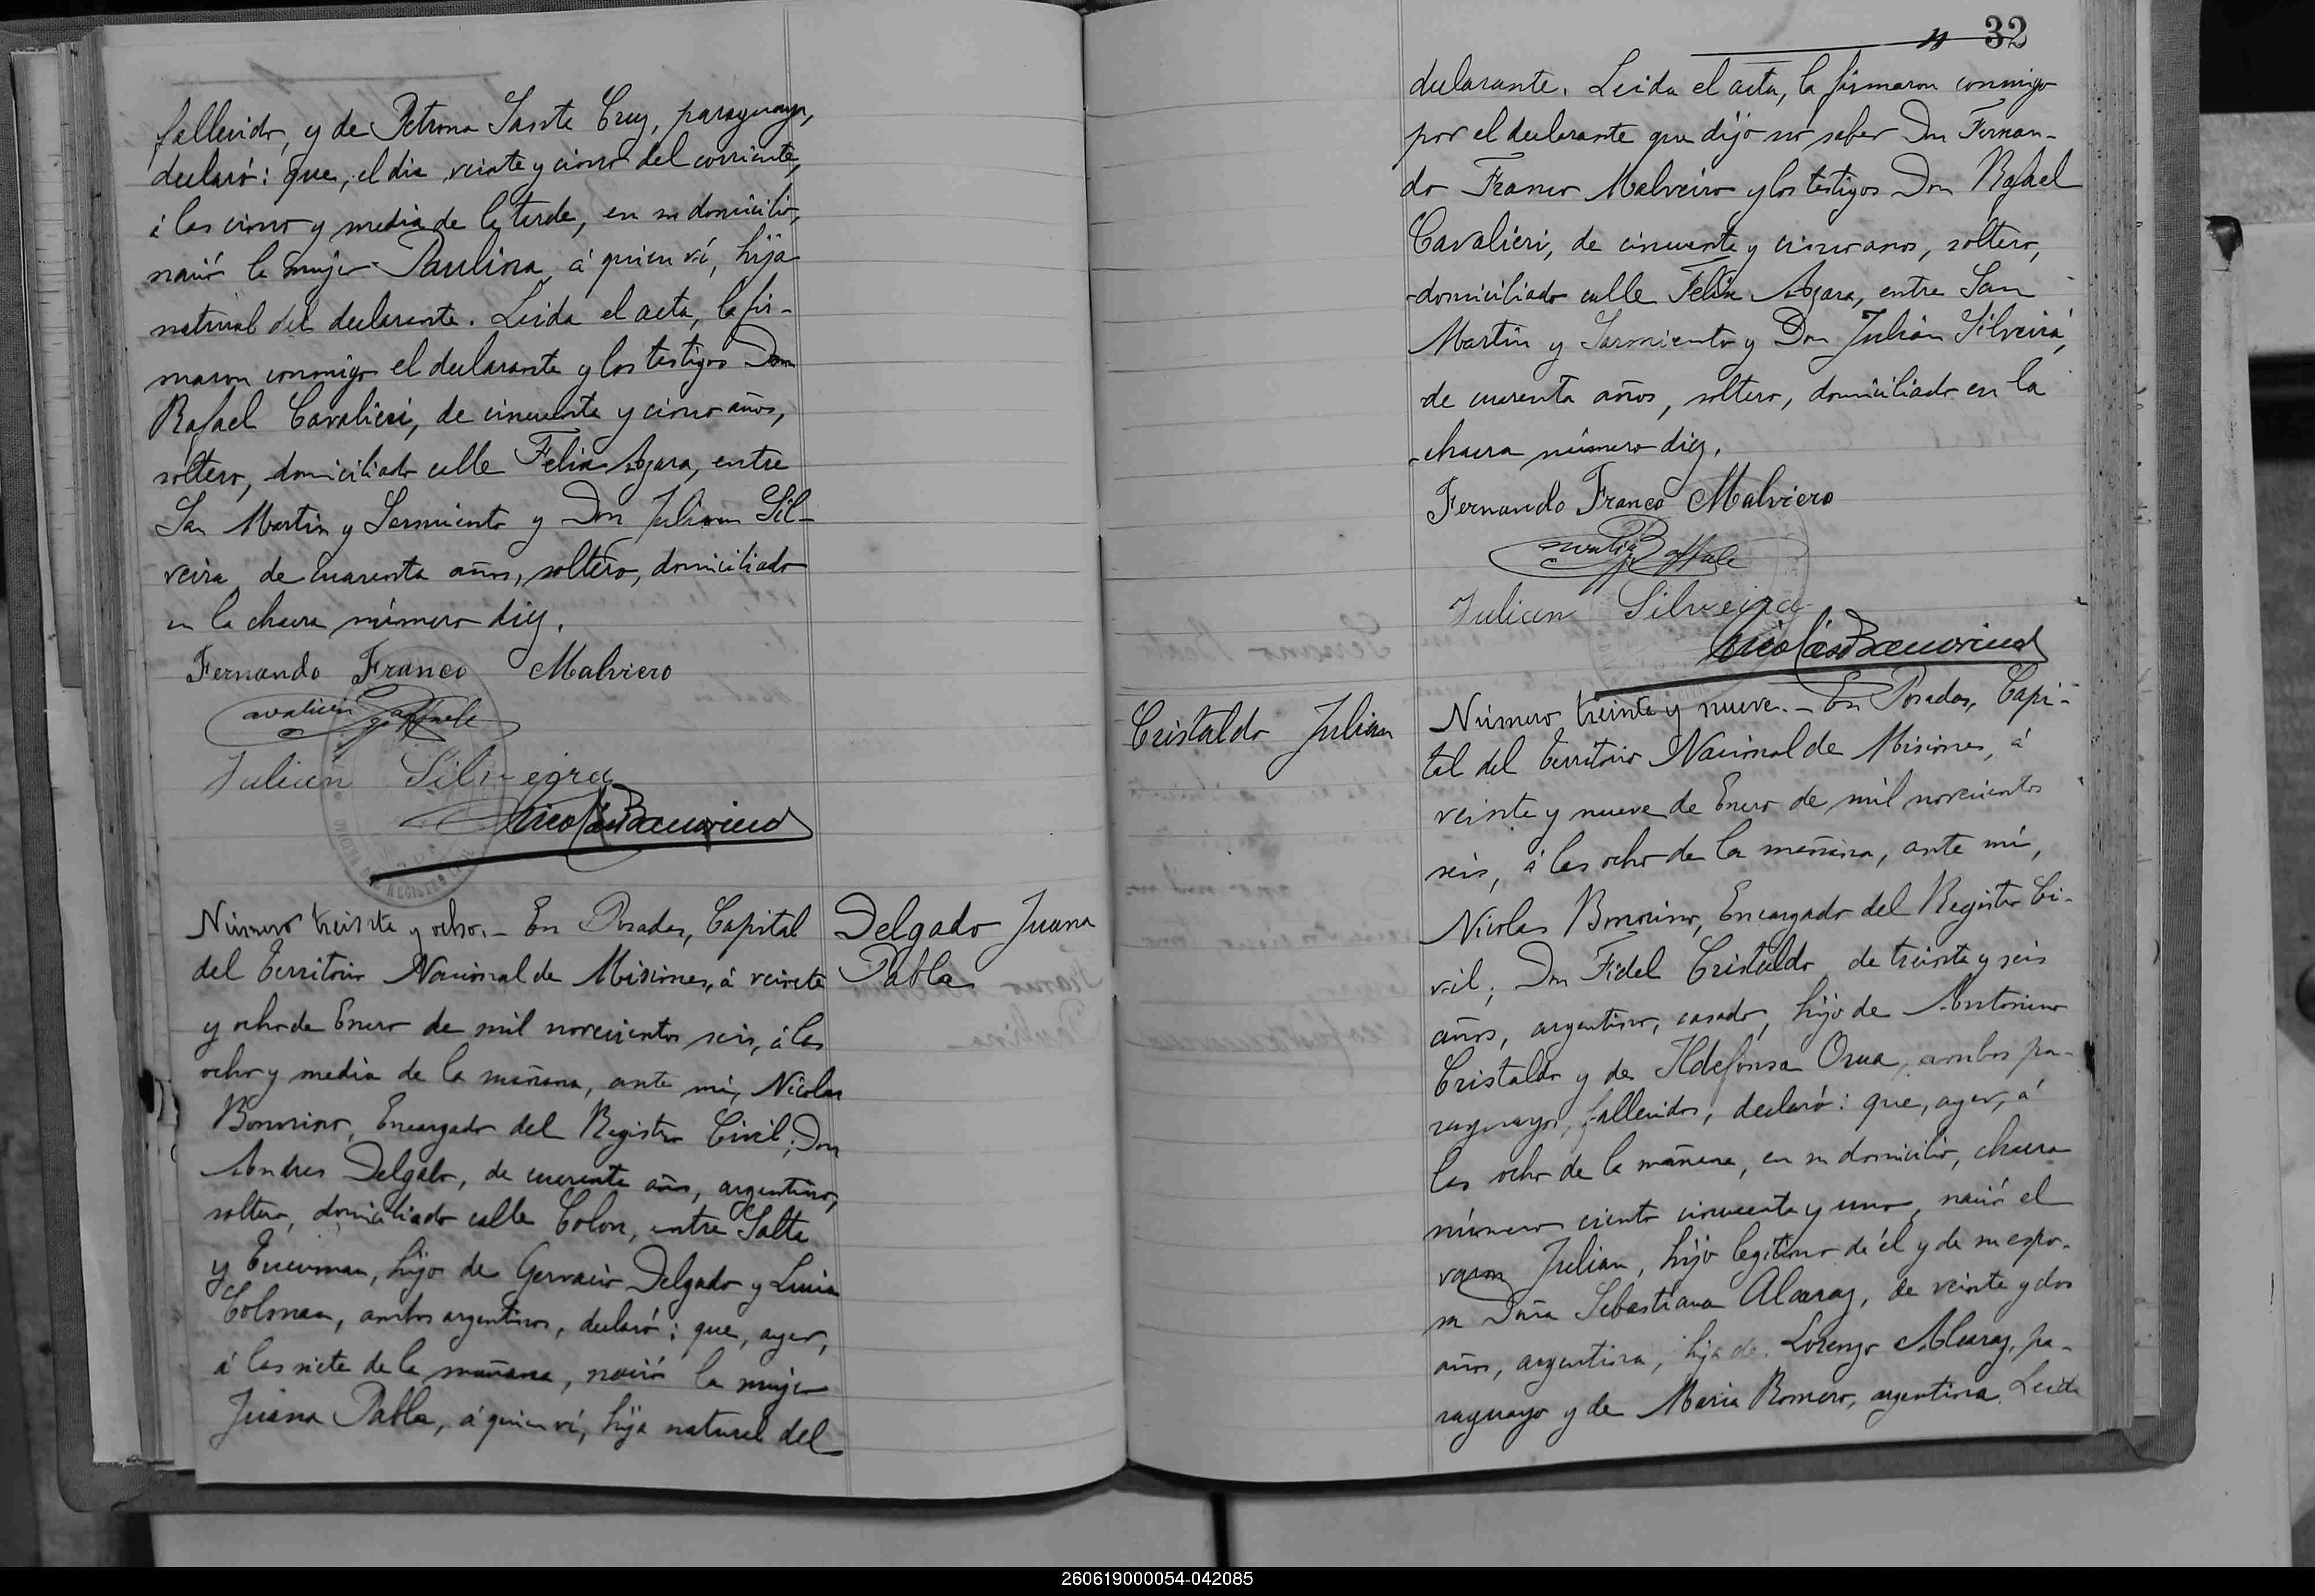 fallecido, y de Petrona Santa Cruz, paraguaya,
declaró: que, el dia veinte y cinco del corriente,
á las cinco y media de la tarde, en su domicilio,
nació la mujer Paulina, á quien ví, hija
natural del declarante. Leida el acta, la fir-
maron conmigo el declarante y los testigos Don
Rafael Cavalieri, de cincuenta y cinco años,
soltero, domiciliado calle Felix Azara, entre
San Martin y Sarmiento y Don Julian Sil-
veira, de cuarenta años, soltero, domiciliado
en la chacra número diez.
Fernando Franco Malviero
Julian Silveyra
Número treinta y ocho.- En Posadas, Capital
del Territorio Nacional de Misiones, á veinte
y ocho de Enero de mil novecientos seis, á las
ocho y media de la mañana, ante mí, Nicolas
Bonorino, Encargado del Registro Civil; Don
Andres Delgado, de cuarenta años, argentino,
soltero, domiciliado calle Colon, entre Salta
y Tucuman, hijo de Gervacio Delgado y Lucia
Colman, ambos argentinos, declaró: que, ayer,
á las siete de la mañana, nació la mujer
Juana Pabla, á quien ví, hija natural del
Delgado Juana
Pabla
32
declarante. Leida el acta, la firmaron conmigo
por el declarante que dijo no saber Don Fernan-
do Franco Malveiro y los testigos Don Rafael
Cavalieri, de cincuenta y cinco anos, soltero,
domiciliado calle Felix Azara, entre San
Martin y Sarmiento y Don Julián Silveira,
de cuarenta años, soltero, domiciliado en la
chacra número diez.
Fernando Franco Malviero
Julian Silveira
Cristaldo Julian
Número treinta y nueve.- En Posadas, Capi-
tal del Territorio Nacional de Misiones, á
veinte y nueve de Enero de mil novecientos
seis, á las ocho de la mañana, ante mí,
Nicolas Bonorino, Encargado del Registro Ci-
vil; Don Fidel Cristaldo de treinta y seis
años, argentino, casado, hijo de Antonino
Cristaldo y de Ildefonsa Orua, ambos pa-
raguayos, fallecidos, declaró: que, ayer, á
las ocho de la mañana, en su domicilio, chacra
número ciento cincuenta y uno, nació el
varon Julian, hijo legítimo de él y de su espo-
sa Doña Sebastiana Alcaraz, de veinte y dos
años, argentina, hija de Lorenzo Alcaraz, pa-
raguayo y de Maria Romero, argentina. Leida
260619000054-042085